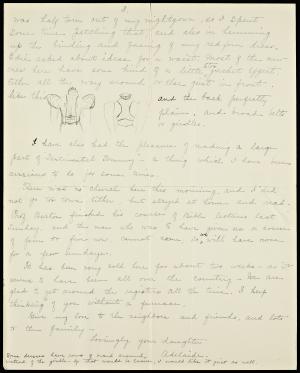 3.
was half torn out of my nightgown, so I spent
some time patching that and also in hemming
up the binding and facing of my red for dress.
Edie asked about ideas for a waist. Most of the new
ones here have some kind of a little jacket effect,
either all the way around or else just in front.
like this
and the back perfectly
plain, and broad belts
or girdles.
I have also had the pleasure of reading a large
part of Sentimental Tommy - a thing which I have been
anxious to do for some time.
There was no church here this morning, and I did
not go to town either, but stayed at home and read.
Prof. Burton finished his course of Bible lectures last
Sunday, and the man who was to have given us a course
of four or five now cannot come, so we will have none
for a few Sundays.
It has been very cold here for about two weeks - as it
seems to have been all over the country. We are
glad to get around the registers all the time. I keep
thinking of you without a furnace.
Give my love to the neighbors and friends, and lots
to the family -
Lovingly your daughter
Adelaide.
Some dresses have rows of braid around
instead of the girdle. If that would be easier, I would like it just as well.